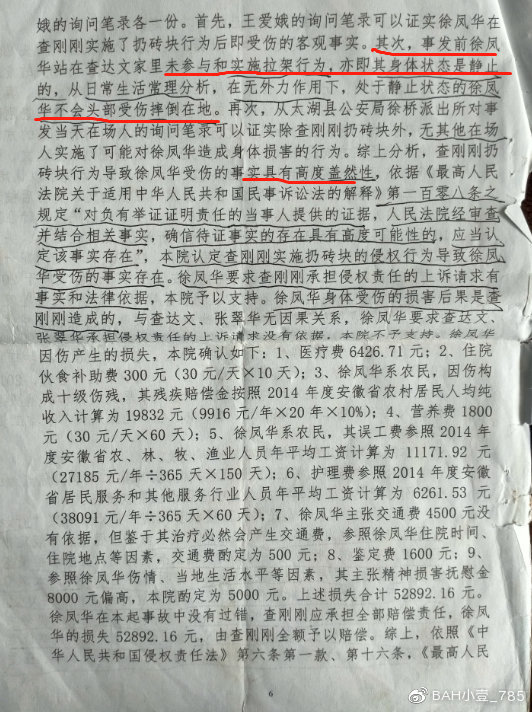 娥的询问笔录各一份。首先，王爱娥的询问笔录可以证实徐凤华在
查刚刚实施了扔砖块行为后即受伤的客观事实。其次，事发前徐凤
华站在查达文家里未参与和实施拉架行为，亦即其身体状态是静止
的，从日常生活常理分析，在无外力作用下，处于静止状态的徐凤
华不会头部受伤摔倒在地。再次，从太湖县公安局徐桥派出所对事
发当天在场人的询问笔录可以证实除查刚刚扔砖块外，无其他在场
人实施了可能对徐凤华造成身体损害的行为。综上分析，查刚刚扔
砖块行为导致徐凤华受伤的事实具有高度盖然性，依据《最高人民
法院关于适用中华人民共和国民事诉讼法的解释》第一百零八条之
规定“对负有举证证明责任的当事人提供的证据，人民法院经审查
并结合相关事实，确信待证事实的存在具有高度可能性的，应当认
定该事实存在”，本院认定查刚刚实施扔砖块的侵权行为导致徐凤
华受伤的事实存在。徐凤华要求查刚刚承担侵权责任的上诉请求有
事实和法律依据，本院予以支持。徐凤华身体受伤的损害后果是查
刚刚造成的，与查达文、张翠华无因果关系，徐凤华要求查达文、
张翠华承担侵权责任的上诉请求没有依据，本院不予支持。徐凤华
因伤产生的损失，本院确认如下：1、医疗费 6426.71 元；2、住院
伙食补助费 300 元（30 元/天×10 天）；3、徐凤华系农民，因伤构
成十级伤残，其残疾赔偿金按照 2014 年度安徽省农村居民人均纯
收入计算为 19832 元（9916 元/年×20 年×10%）；4、营养费 1800
元（30 元/天×60 天）；5、徐凤华系农民，其误工费参照 2014 年
度安徽省农、林、牧、渔业人员年平均工资计算为 11171.92 元
（27185 元/年÷365 天×150 天）；6、护理费参照 2014 年度安徽
省居民服务和其他服务行业人员年平均工资计算为 6261.53 元
（38091 元/年÷365 天×60 天）；7、徐凤华主张交通费 4500 元没
有依据，但鉴于其治疗必然会产生交通费，参照徐凤华住院时间、
住院地点等因素，交通费酌定为 500 元；8、鉴定费 1600 元；9、
参照徐凤华伤情、当地生活水平等因素，其主张精神损害抚慰金
8000 元偏高，本院酌定为 5000 元。上述损失合计 52892.16 元。
徐凤华在本起事故中没有过错，查刚刚应承担全部赔偿责任，徐凤
华的损失 52892.16 元，由查刚刚全额予以赔偿。综上，依照《中
华人民共和国侵权责任法》第六条第一款、第十六条，《最高人民
6
BAH小壹_785